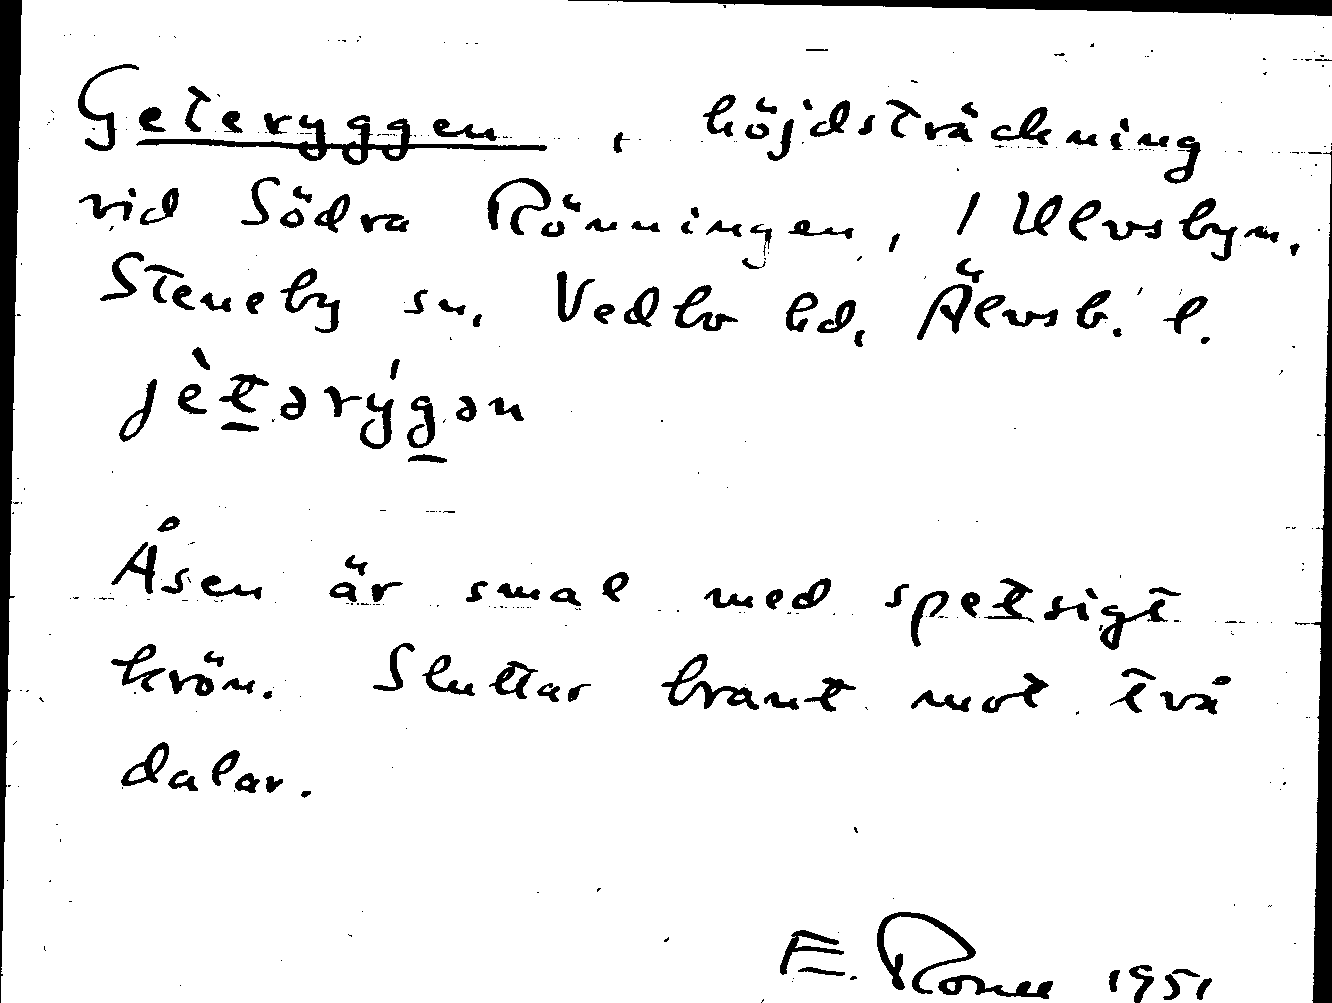 Geteryggen, höjdsträckning
vid Södra Rönningen, / Ulvsbyn.
Steneby sn, Vedbo hd, Älvsb. l.
jèt̲ərýg̲ən
Åsen är smal med spetsigt
krön. Sluttar brant mot två
dalar.
E. 1951